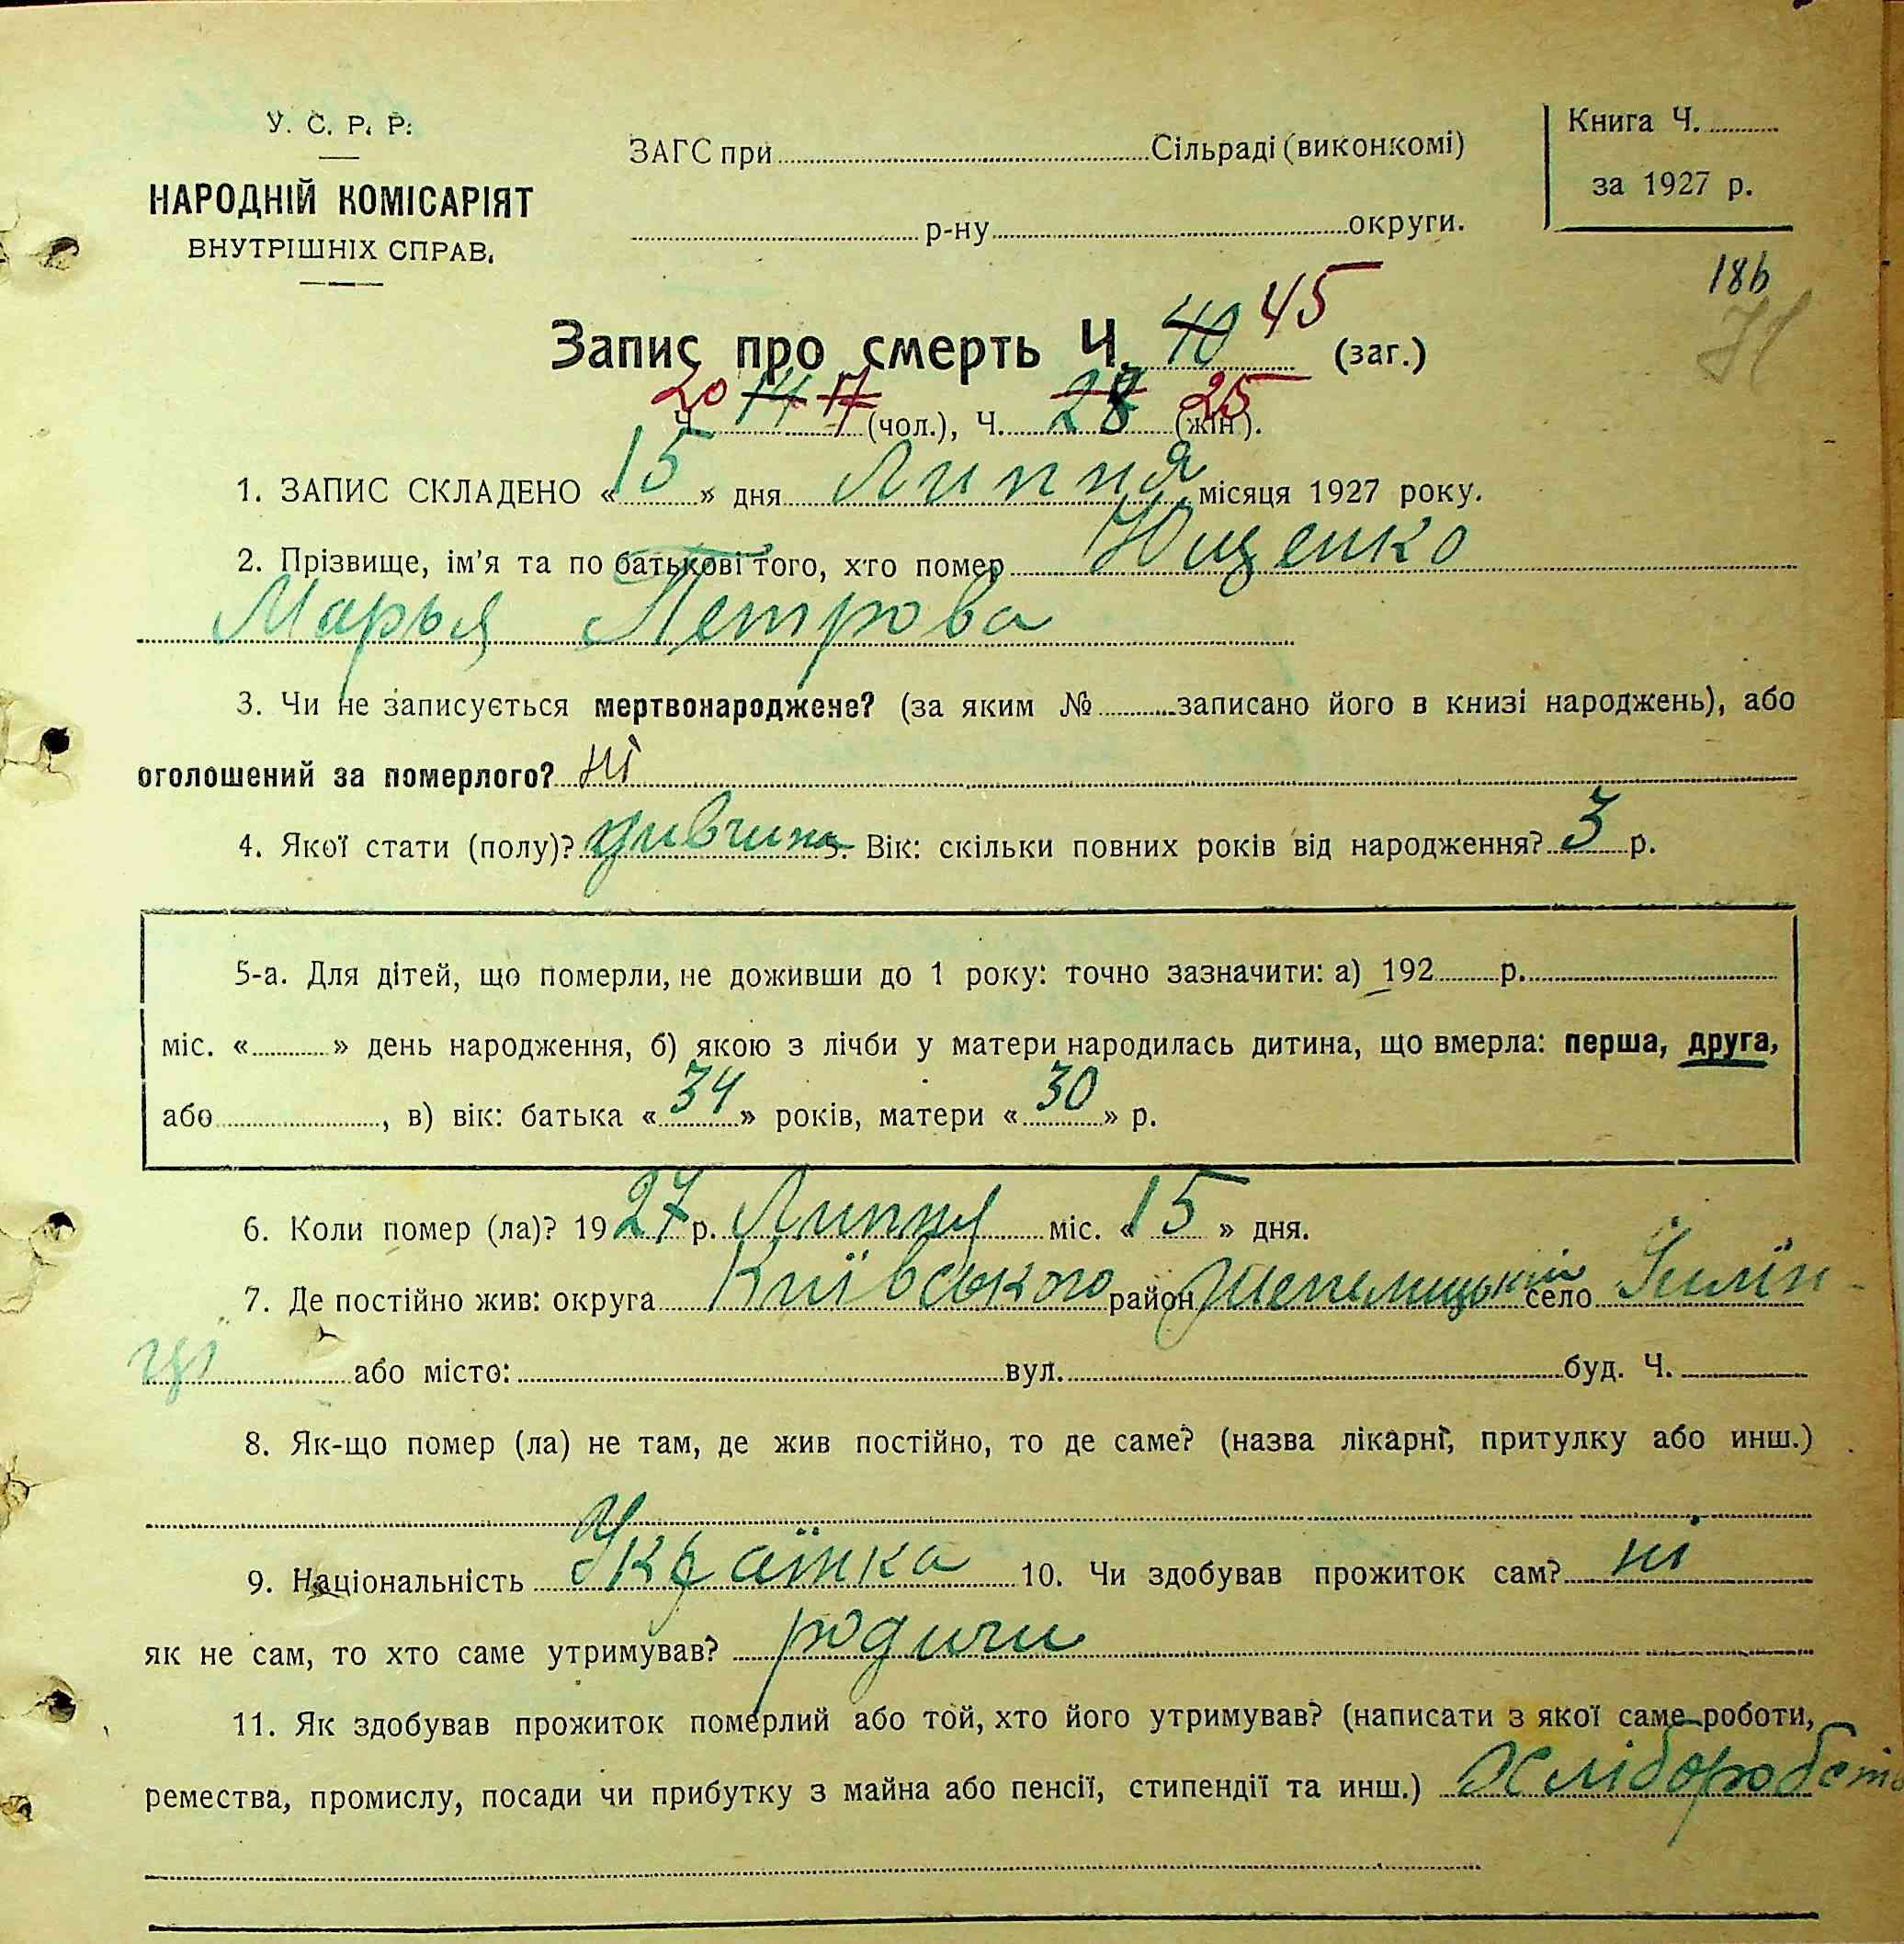 У. С. Р. Р.
НАРОДНІЙ КОМІСАРІЯТ
ВНУТРІШНІХ СПРАВ.
ЗАГС при Сільраді (виконкомі)
р-ну округи.
Книга Ч.
за 1927 р.
186
Запис про смерть Ч. 40 45 (заг.)
Ч. 20 14 17 (чол.), Ч. 28 25 (жін.).
1. ЗАПИС СКЛАДЕНО «15» дня Липня місяця 1927 року.
2. Прізвище, ім'я та по батькові того, хто помер Ющенко
Марья Петрова
3. Чи не записується мертвонароджене? (за яким № записано його в книзі народжень), або
оголошений за померлого? ні
4. Якої стати (полу)? дивчина 5. Вік: скільки повних років від народження? 3 р.
5-а. Для дітей, що померли, не доживши до 1 року: точно зазначити: а) 192 р.
міс. « » день народження, б) якою з лічби у матери народилась дитина, що вмерла: перша, друга,
або , в) вік: батька «34» років, матери «30» р.
6. Коли помер (ла)? 1927 р. Липня міс. «15» дня.
7. Де постійно жив: округа Київського район Шепелицький село Ілїн-
ці або місто: вул. буд. Ч.
8. Як-що помер (ла) не там, де жив постійно, то де саме? (назва лікарні, притулку або инш.)
9. Національність Українка 10. Чи здобував прожиток сам? ні
як не сам, то хто саме утримував? родичи
11. Як здобував прожиток померлий або той, хто його утримував? (написати з якої саме роботи,
ремества, промислу, посади чи прибутку з майна або пенсії, стипендії та инш.) Хліборобств